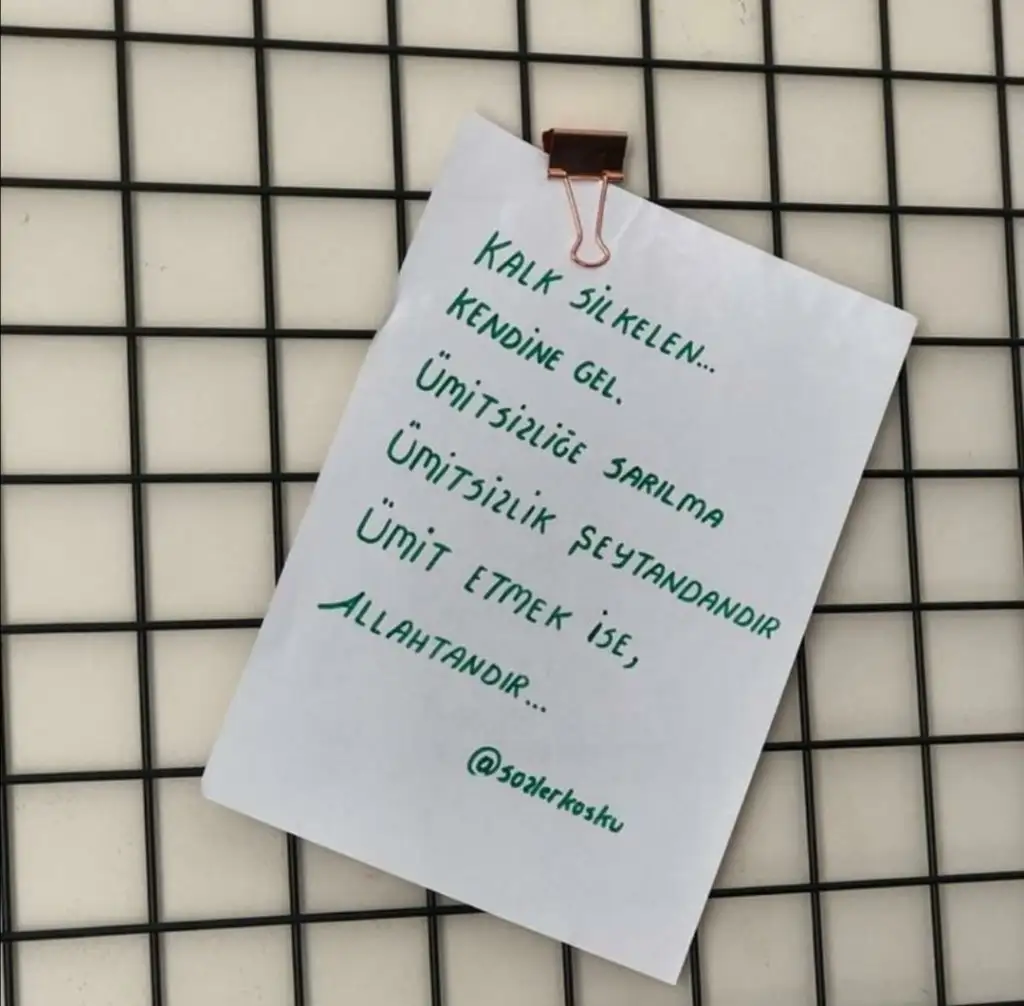 KALK SİLKELEN...
KENDİNE GEL.
ÜMİTSİZLİĞE SARILMA
ÜMİTSİZLİK ŞEYTANDANDIR
ÜMİT ETMEK İSE,
ALLAHTANDIR...
@sozlerkosku